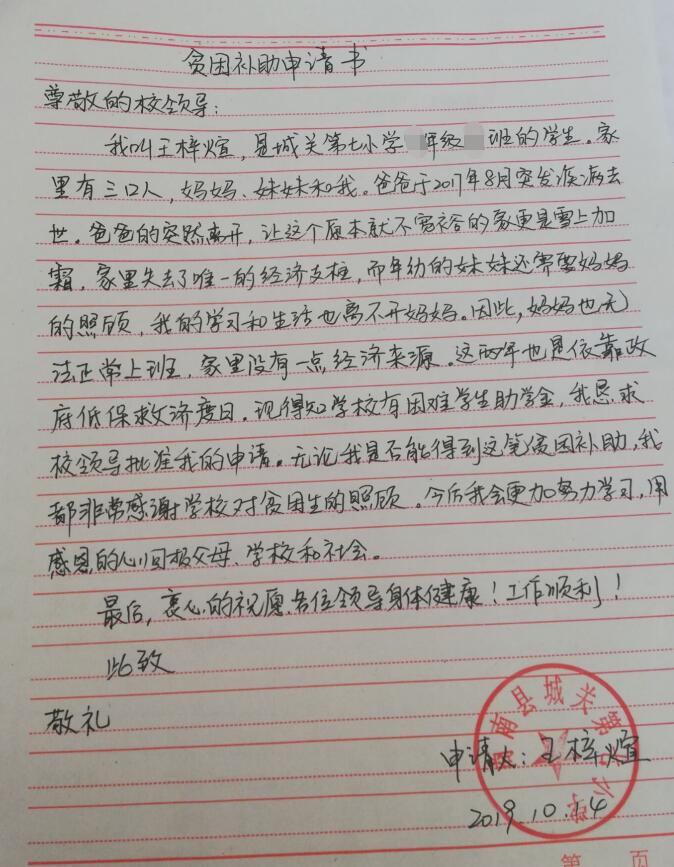 贫困补助申请书
尊敬的校领导:
我叫王梓煊,县城关第七小学 年级 班的学生。家
里有三口人,妈妈、妹妹和我。爸爸于2017年8月突发疾病去
世。爸爸的突然离开,让这个原本就不富裕的家更是雪上加
霜,家里失去了唯一的经济支柱,而年幼的妹妹还需要妈妈
的照顾,我的学习和生活也离不开妈妈。因此,妈妈也无
法正常上班,家里没有一点经济来源。这两年也是依靠政
府低保救济度日。现得知学校有困难学生助学金,我恳求
校领导批准我的申请。无论我是否能得到这笔贫困补助,我
都非常感谢学校对贫困生的照顾。今后我会更加努力学习,用
感恩的心回报父母、学校和社会。
最后,衷心的祝愿各位领导身体健康!工作顺利!
此致
敬礼
南县城关第七小学
申请人:王梓煊
2019.10.14
第 页